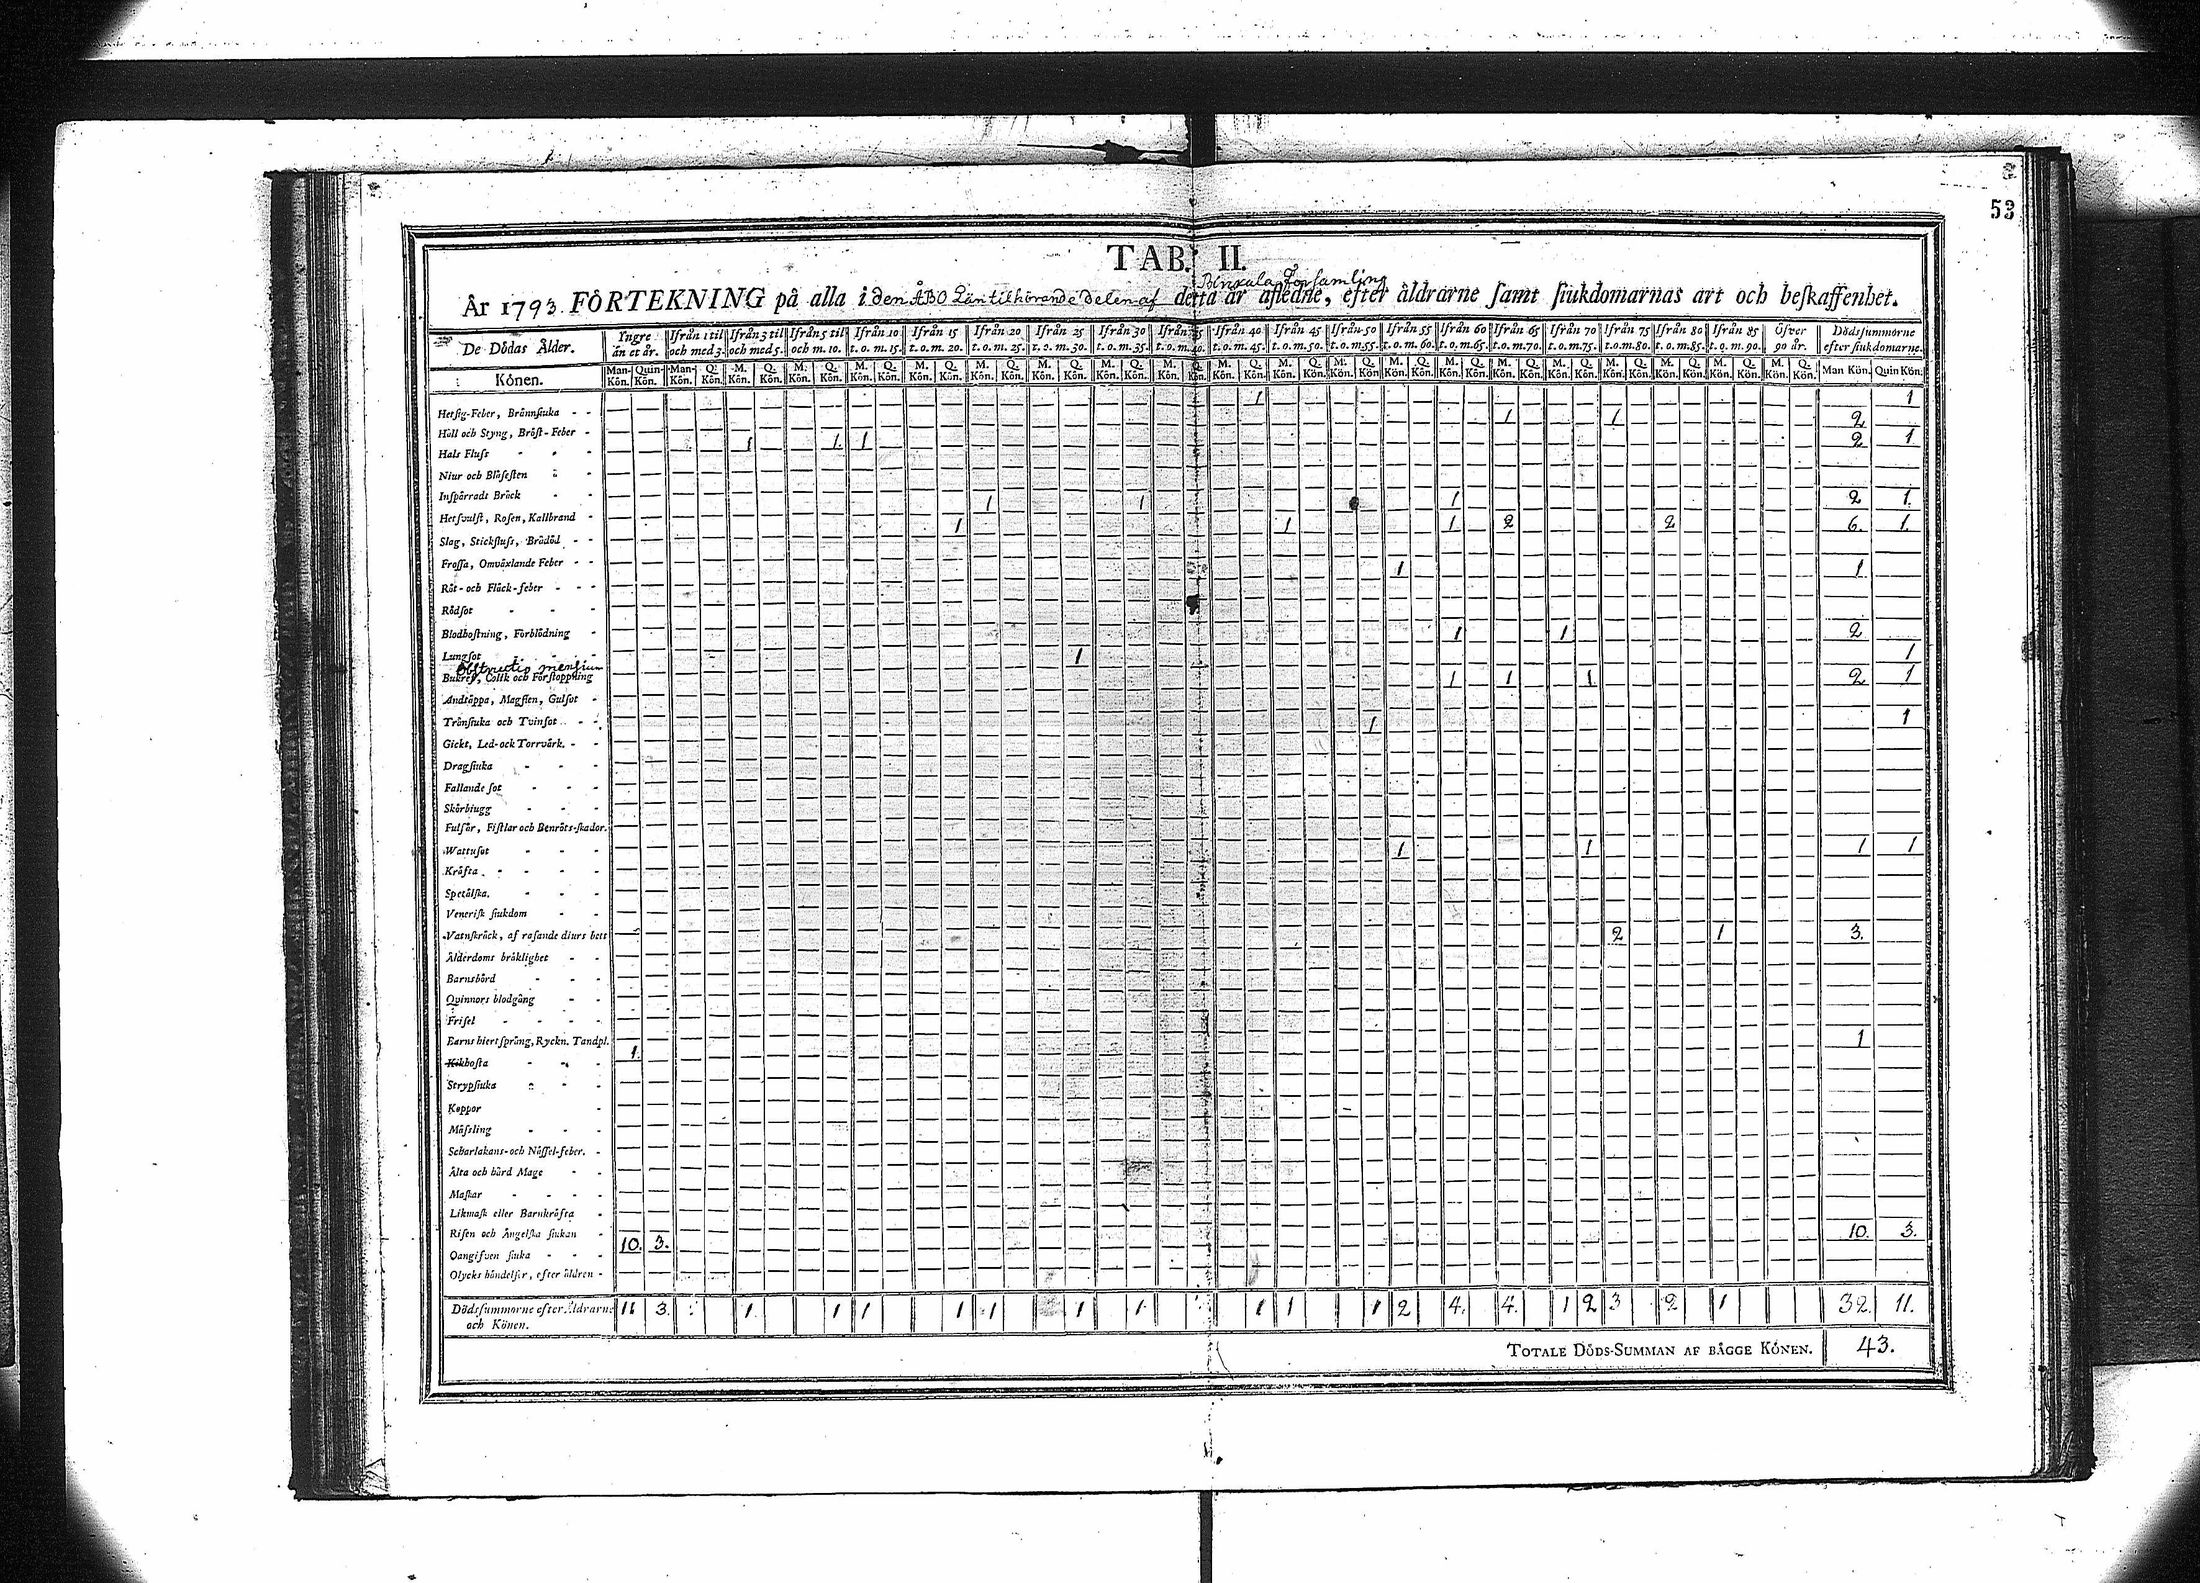 53
TAB. II.
År 1793. FÖRTEKNING på alla i den ÅBO Län tilhörande Delen af detta år afledne, efter åldrarne samt siukdomarnas art och beskaffenhet.
De Dödas Ålder. Yngre än et år. Ifrån 1 til och med 3. Ifrån 3 til och med 5. Ifrån 5 til och m. 10. Ifrån 10 t. o. m. 15. Ifrån 15 t. o. m. 20. Ifrån 20 t. o. m. 25. Ifrån 25 t. o. m. 30. Ifrån 30 t. o. m. 35. Ifrån 35 t. o. m. 40. Ifrån 40 t. o. m. 45. Ifrån 45 t. o. m. 50. Ifrån 50 t. o. m. 55. Ifrån 55 t. o. m. 60. Ifrån 60 t. o. m. 65. Ifrån 65 t. o. m. 70. Ifrån 70 t. o. m. 75. Ifrån 75 t. o. m. 80. Ifrån 80 t. o. m. 85. Ifrån 85 t. o. m. 90. Öfver 90 år. Dödssummorne efter siukdomarne.
Könen. Man-Kön. Quin-Kön. Man-Kön. Q. Kön. M. Kön. Q. Kön. M. Kön. Q. Kön. M. Kön. Q. Kön. M. Kön. Q. Kön. M. Kön. Q. Kön. M. Kön. Q. Kön. M. Kön. Q. Kön. M. Kön. Q. Kön. M. Kön. Q. Kön. M. Kön. Q. Kön. M. Kön. Q. Kön. M. Kön. Q. Kön. M. Kön. Q. Kön. M. Kön. Q. Kön. M. Kön. Q. Kön. M. Kön. Q. Kön. M. Kön. Q. Kön. M. Kön. Q. Kön. M. Kön. Q. Kön. Man Kön. Quin Kön.
Hetsig-Feber, Brännsiuka - - 1 1
Håll och Styng, Bröst-Feber - 1 1 2
Hals Fluss - - - 1 1. 1 2 1
Niur och Blåsesten - -
Inspärradt Bråck - -
Hetsvulst, Rosen, Kallbrand - 1 1 1 2 1.
Slag, Stickfluss, Brådöd - - 1 1 1 2 2 6. 1.
Frossa, Omväxlande Feber - -
Röt- och Fläck-feber - - - 1 1
Rödsot - - -
Blodhostning, Förblödning -
Lungsot - - - 1 1 2
Obstructio mensium 1 1
Bukref, Colik och Förstoppning
Andtäppa, Magsten, Gulsot - 1 1 1 2 1
Trånsiuka och Tvinsot - - 1 1
Gickt, Led- ock Torrvärk. - -
Dragsiuka - - -
Fallande sot - - -
Skörbiugg - - -
Fulsår, Fistlar och Benröts-skador.
Wattusot - - - 1 1 1 1
Kräfta - - - -
Spetälska. - - -
Venerisk siukdom - -
Vatnskräck, af rasande diurs bett
Ålderdoms bräklighet - - 2 1 3.
Barnsbörd - - -
Qvinnors blodgång - -
Frisel - - - -
Barns hiertsprång, Ryckn. Tandpl.
Kikhosta - - - 1. 1
Strypsiuka - - -
Koppor -
Mässling - - -
Scharlakans- och Nässel-feber. -
Älta och hård Mage - -
Maskar - - - -
Likmask eller Barnkräfta -
Risen och Ängelska siukan -
Oangifven siuka - - - 10. 3. 10. 3.
Olycks händelser, efter åldren -
Dödssummorne efter Åldrarne och Könen. 11 3. 1. 1 1 1 1 1 1. 1 1 1 2 4. 4. 1 2 3 2 1 32. 11.
TOTALE DÖDS-SUMMAN AF BÄGGE KÖNEN. 43.